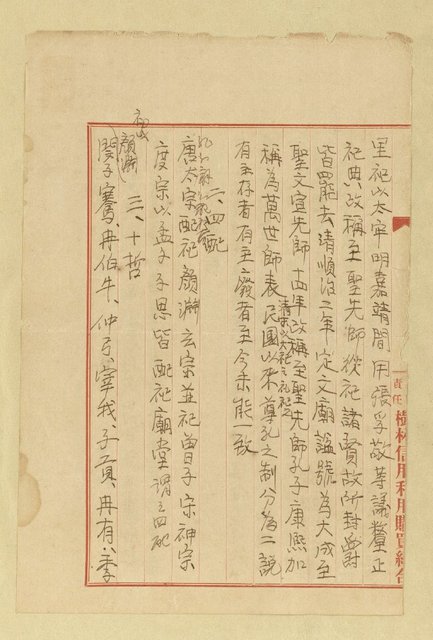 里祀以太宰明嘉靖間用張孚敬等議釐正
祀典改稱至聖先師從祀諸賢故所封爵
皆罷去清順治二年定文廟諡號為大成至
聖文宣先師十四年改稱至聖先師孔子康熙加
稱為萬世師表民國以來尊孔之制分為二說
有主存者有主廢者至今未能一致
二、四配
唐太宗配祀顏淵玄宗並祀曾子宋神宗
度宗以孟子子思皆配祀廟堂謂之四配
三、十哲
顏淵
閔子騫、冉伯牛、仲弓、宰我、子貢、冉有、季
責任
樹林信用利用購買組合